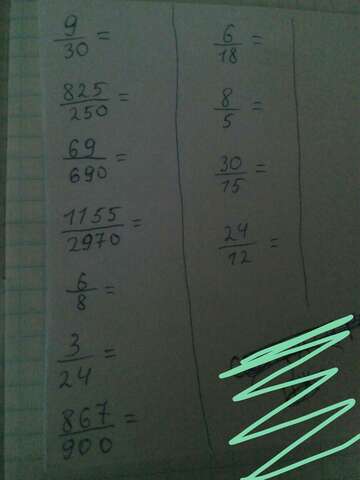 9/30 =
825/250 =
69/690 =
1155/2970 =
6/8 =
3/24 =
867/900 =
6/18 =
8/5 =
30/15 =
24/12 =